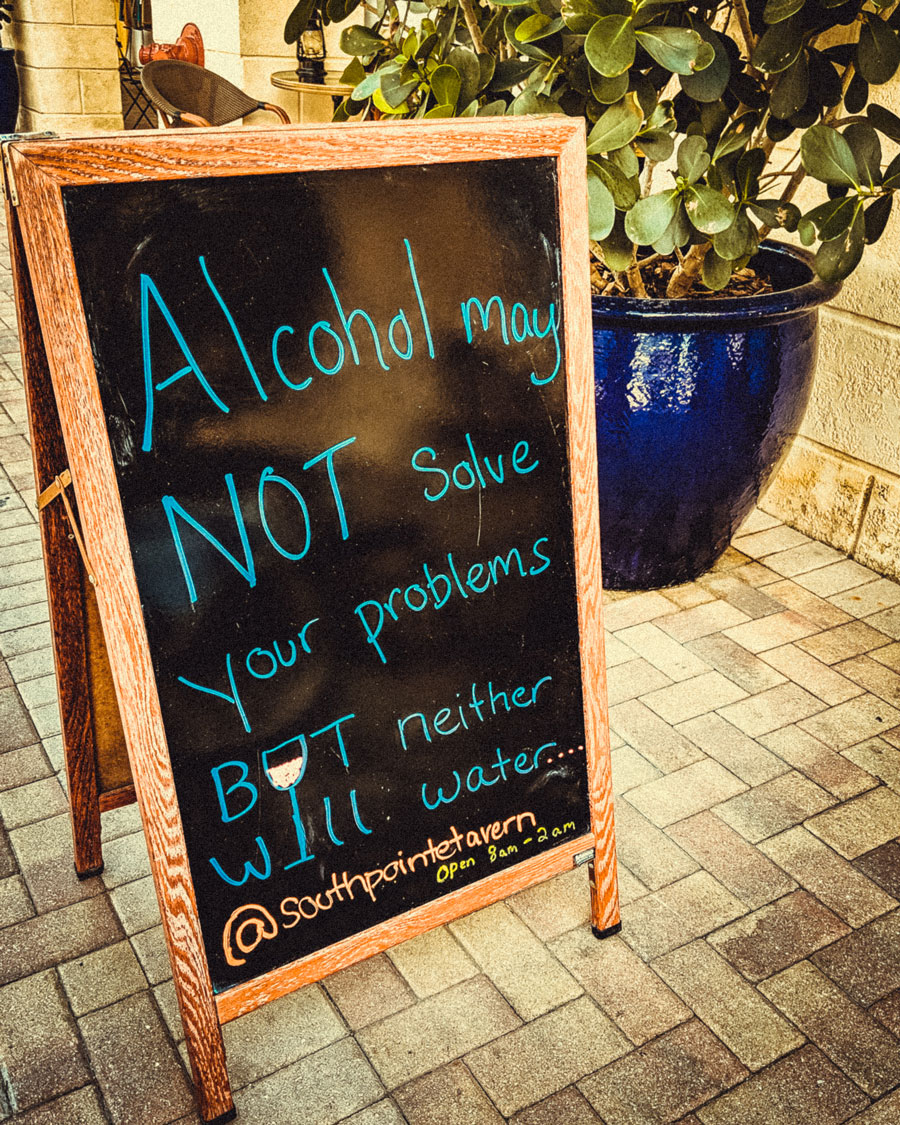 Alcohol may
NOT Solve
your problems
BUT neither
will water....
@southpointetavern
Open 8am - 2am